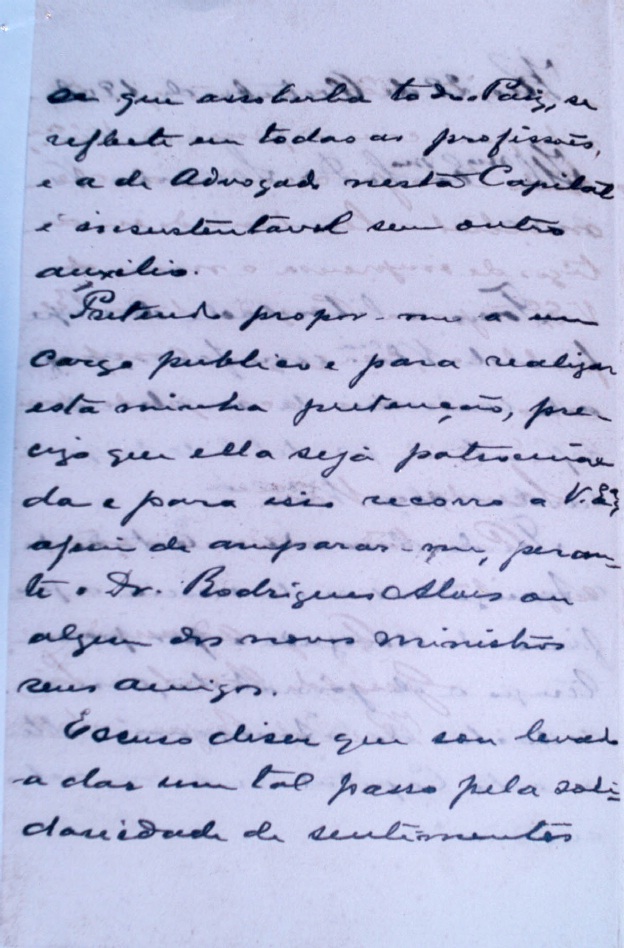 se que assoberba todo o Paiz, se
reflecte em todas as profissões,
e a de Advogado nesta Capital
é insustentavel sem outro
auxilio.
Pretendo propor-me a um
cargo publico e para realizar
esta minha pretenção, pre
cizo que ella seja patrocina
da e para isso recorro a V. Exª,
afim de amparar-me, peran-
te o Dr. Rodrigues Alves ou
algum dos novos ministros
seus amigos.
Escuso diser que sou levado
a dar um tal passo pela soli-
dariedade de sentimentos